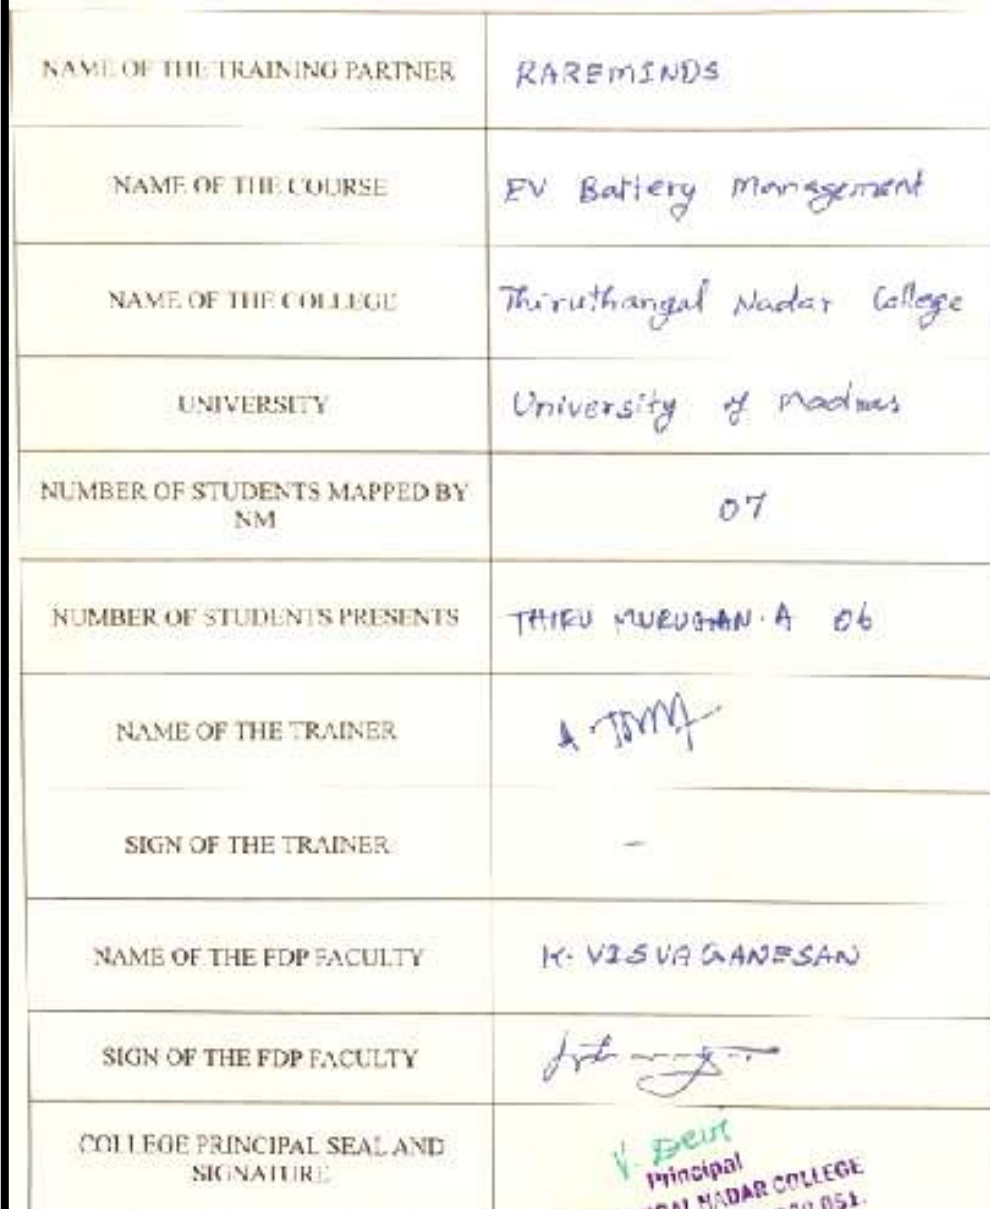 NAME OF THE TRAINING PARTNER RAREMINDS
NAME OF THE COURSE EV Battery Management
NAME OF THE COLLEGE Thiruthangal Nadar College
UNIVERSITY University of Madras
NUMBER OF STUDENTS MAPPED BY
NM 07
NUMBER OF STUDENTS PRESENTS THIRU MURUGHAN. A 06
NAME OF THE TRAINER
SIGN OF THE TRAINER -
NAME OF THE FDP FACULTY K. VISVA GANESAN
SIGN OF THE FDP FACULTY
COLLEGE PRINCIPAL SEAL AND
SIGNATURE V. Devi
Principal
NADAR COLLEGE
051.